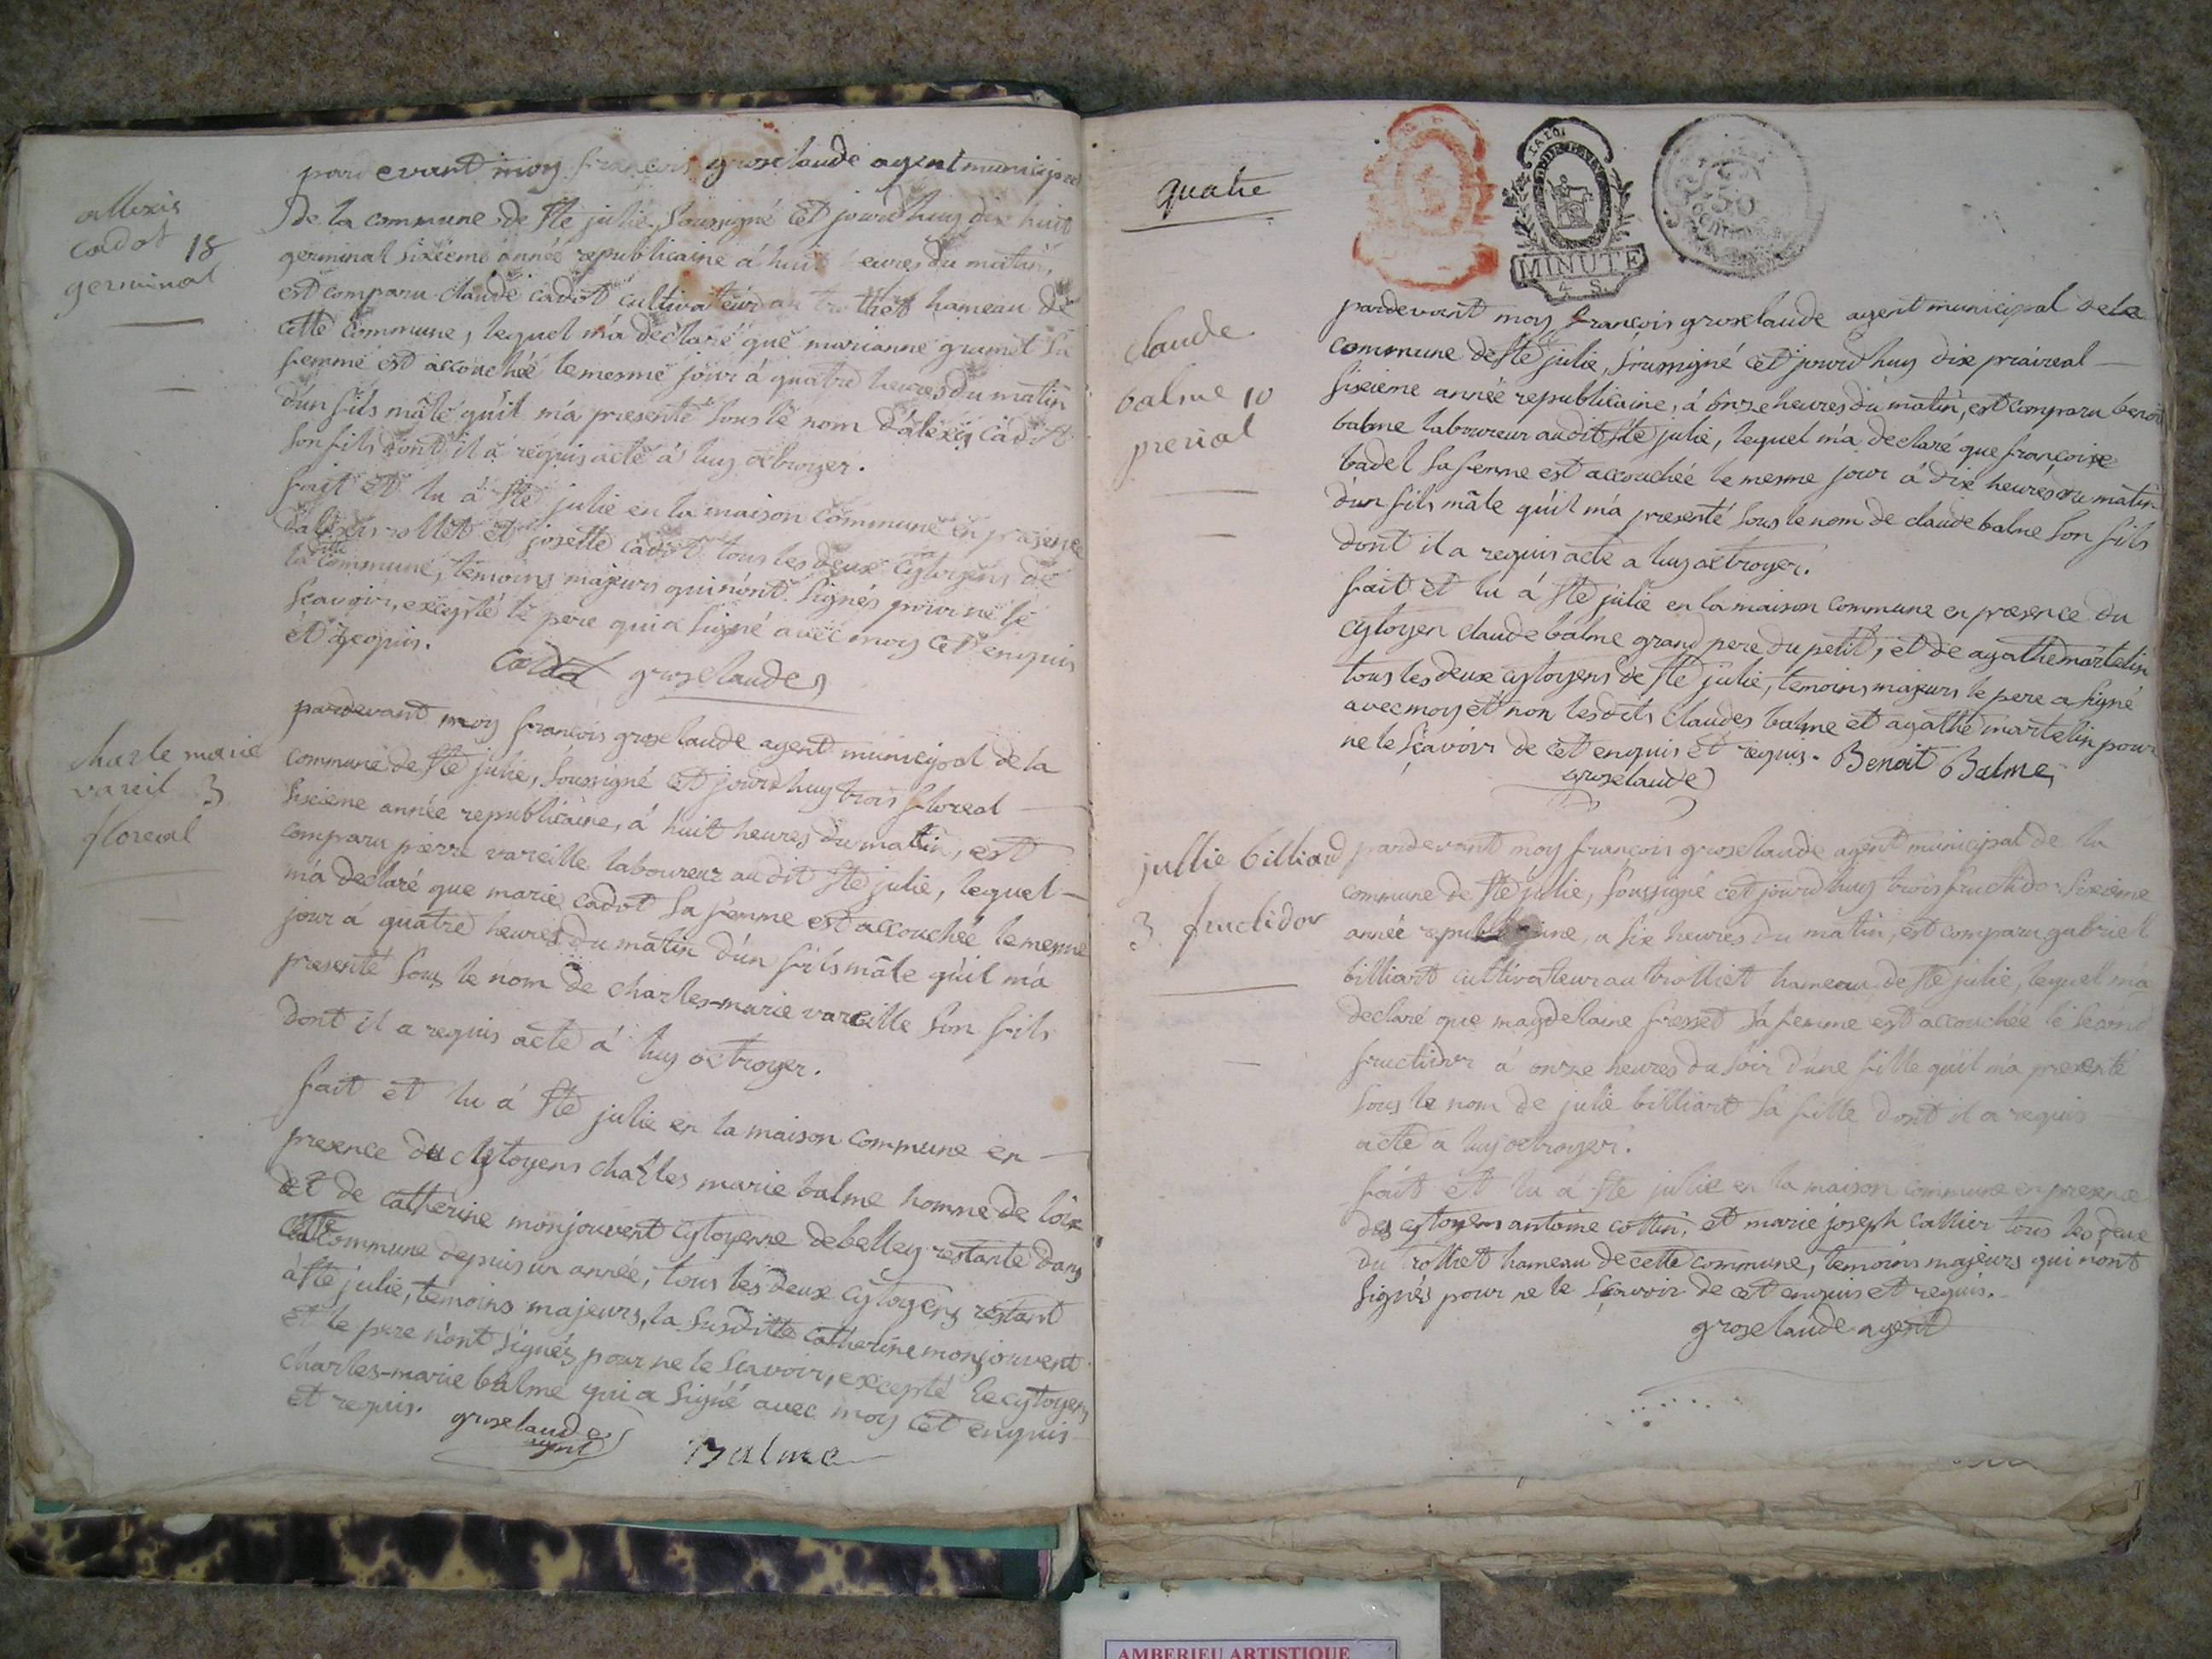 allexis
cadot 18
germinal
pardevant moy françois groselaude agent municipal
de la commune de Ste julie, soussigné cet jourdhuy dix huit
germinal sixieme année republicaine á huit heures du matin,
est comparu claude cadot cultivateur au trolliet hameau de
cette commune, lequel m'a declaré que marianne grumet sa
femme est accouchée le mesme jour á quatre heures du matin
d'un fils mâle qu'il m'a presenté sous le nom d'alexis cadot
son fils dont il a requis acte á luy octroyer.
fait et lu á Ste julie en la maison commune en presence
d'alexis rollet et josette cadot tous les deux cytoyens de
la ditte commune, temoins majeurs qui n'ont signés pour ne le
sçavoir, excepté le pere qui a signé avec moy cet enquis
et requis.
cadot groselaude
charle marie
vareil 3
floreal
pardevant moy françois groselaude agent municipal de la
commune de Ste julie, soussigné cet jourdhuy trois floreal
sixieme année republicaine, á huit heures du matin, est
comparu pierre vareille laboureur audit Ste julie, lequel
m'a declaré que marie cadot sa femme est accouchée le mesme
jour á quatre heures du matin d'un fils mâle qu'il m'a
presenté sous le nom de charles-marie vareille son fils
dont il a requis acte á luy octroyer.
fait et lu á Ste julie en la maison commune en
presence du cytoyens charles marie balme homme de loix
et de catherine monjouvent cytoyenne de belley restante dans
cette commune depuis un année, tous les deux cytoyens restant
á Ste julie, temoins majeurs, la susditte catherine monjouvent
et le pere n'ont signés pour ne le sçavoir, excepté le cytoyens
charles-marie balme qui a signé avec moy cet enquis
et requis. groselaude
agent
Balme
quatre
LA LOI
MINUTE
4 S.
50
claude
balme 10
prerial
pardevant moy françois groselaude agent municipal de la
commune de Ste julie, soussigné cet jourdhuy dix praireal
sixieme année republicaine, á onze heures du matin, est comparu benoit
balme laboureur audit Ste julie, lequel m'a declaré que françoise
badel sa femme est accouchée le mesme jour á dix heures du matin
d'un fils mâle qu'il m'a presenté sous le nom de claude balme son fils
dont il a requis acte a luy octroyer.
fait et lu á Ste julie en la maison commune en presence du
cytoyen claude balme grand pere du petit, et de agathe martelin
tous les deux cytoyens de Ste julie, temoins majeurs le pere a signé
avec moy et non lesdits claudes balme et agathe martelin pour
ne le sçavoir de cet enquis et requis. Benoit Balme
groselaude
jullie billiard
3 fructidor
pardevant moy françois groselaude agent municipal de la
commune de Ste julie, soussigné cet jourdhuy trois fructidor sixieme
année republicaine, a six heures du matin, est comparu gabriel
billiart cultivateur au trolliet hameau de Ste julie, lequel m'a
declaré que magdelaine fresset sa femme est accouchée le second
fructidor á onze heures du soir d'une fille qu'il m'a presenté
sous le nom de julie billiart sa fille dont il a requis
acte a luy octroyer.
fait et lu á Ste julie en la maison commune en presence
des cytoyens antoine cottin, et marie joseph callier tous les deux
du trolliet hameau de cette commune, temoins majeurs qui n'ont
signés pour ne le sçavoir de cet enquis et requis.
groselaude agent
AMBERIEU ARTISTIQUE